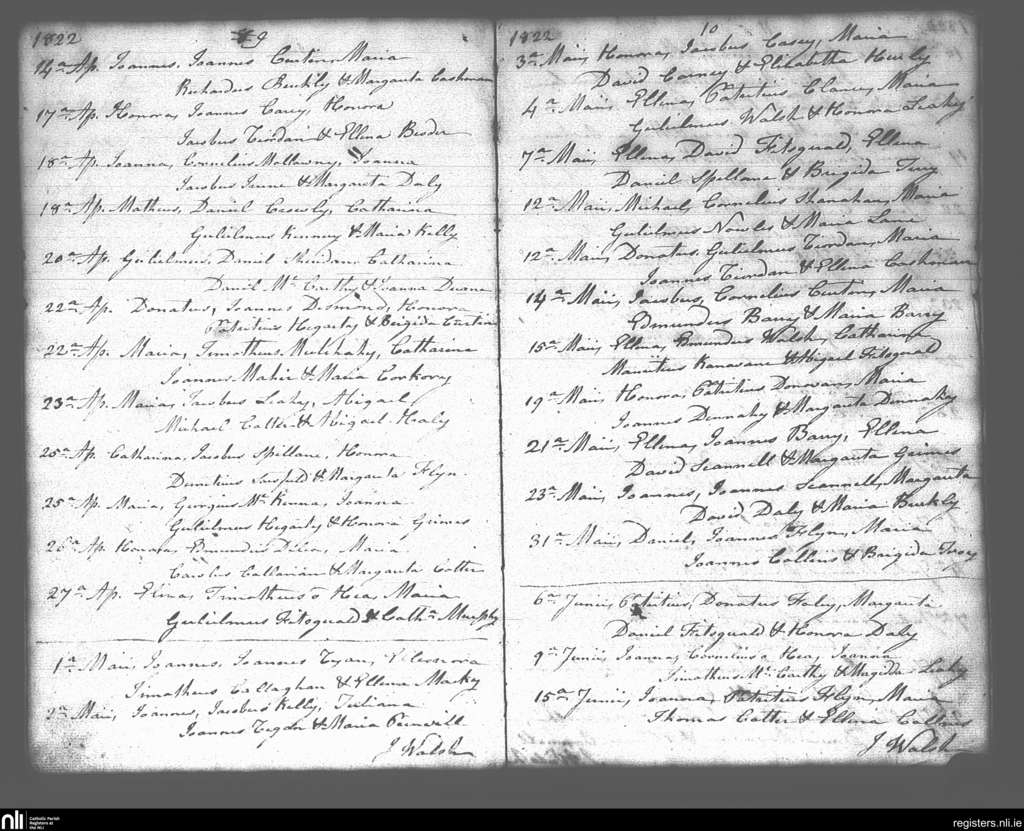 1822 9
14a Ap. Joannes, Joannes Curtin, Maria
Richardus Buckly & Margarita Cashman
17a Ap. Honora, Joannes Carey, Honora
Jacobus Riordan & Ellena
18a Ap. Joanna, Cornelius Mollowny, Joanna
Jacobus & Margarita Daly
18a Ap. Matheus, Daniel Crowly, Catharina
Gulielmus Kinney & Maria Kelly
20a Ap. Gulielmus, Daniel Catharina
Daniel Mc Carthy & Joanna
22a Ap. Donatus, Joannes Desmond, Honora
Patritius Hegarty & Brigida Curtin
22a Ap. Maria, Timotheus Mulchahy, Catharina
Joannes Mahir & Maria Corkory
23a Ap. Maria, Jacobus Leahy, Abigael
Michael Cotter & Abigael Healy
25a Ap. Catharina, Jacobus Spillane, Honora
Demetrius & Margarita Flyn
25a Ap. Maria, Georgius Mc Kenna, Joanna
Gulielmus Hegarty & Honora Grimes
26a Ap. Honora, Edmundus Maria
Carolus Callanan & Margarita Cotter
27a Ap. Elena, Timotheus o Hea, Maria
Gulielmus Fitsguald & Cath:a Murphy
1a Maii, Joannes, Joannes Ryan,
Timotheus Callaghan & Ellena Macky
2a Maii, Joannes, Jacobus Kelly, Juliana
Joannes & Maria
J Walsh
1822 10
3a Maii, Honora, Jacobus Casey, Maria
David Carney & Elizabetha Hurly
4a Maii, Ellena, Patritius Clancy, Maria
Gulielmus Walsh & Honora Leahy
7a Maii, Ellena, David Fitsguald, Ellena
Daniel Spellane & Brigida Tivy
12a Maii, Michael, Cornelius Shanahan, Maria
Gulielmus Nowles & Maria Lane
12a Maii, Donatus, Gulielmus Riordan, Maria
Joannes Riordan & Ellena Cashman
14a Maii, Jacobus, Cornelius Curtin, Maria
Edmundus Barry & Maria Barry
15a Maii, Ellena, Edmundus Walsh, Catharina
Mauritius Kanavane & Abigael Fitsguald
19a Maii, Honora, Patritius Donovan, Maria
Joannes Dennahy & Margarita Dennahy
21a Maii, Ellena, Joannes Barry, Ellena
David Scannell & Margarita Grimes
23a Maii, Joannes, Joannes Scannell, Margarita
David Daly & Maria Buckly
31a Maii, Daniel, Joannes Flyn, Maria
Joannes Collins & Brigida Tivy
6a Junii, Patritius, Donatus Haly, Margarita
Daniel Fitsguald & Honora Daly
9a Junii, Joanna, Cornelius o Hea, Joanna
Timotheus Mc Carthy & Brigida Leahy
15a Junii, Joanna, Patritius Flyn, Maria
Thomas Cotter & Ellena Collins
J Walsh
nli
Catholic Parish
Registers at
the NLI
registers.nli.ie